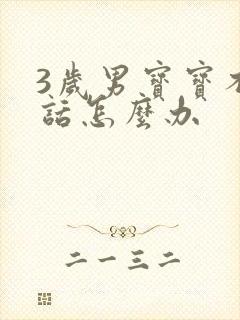 3歲男寶寶不
話怎麼办
二一三二